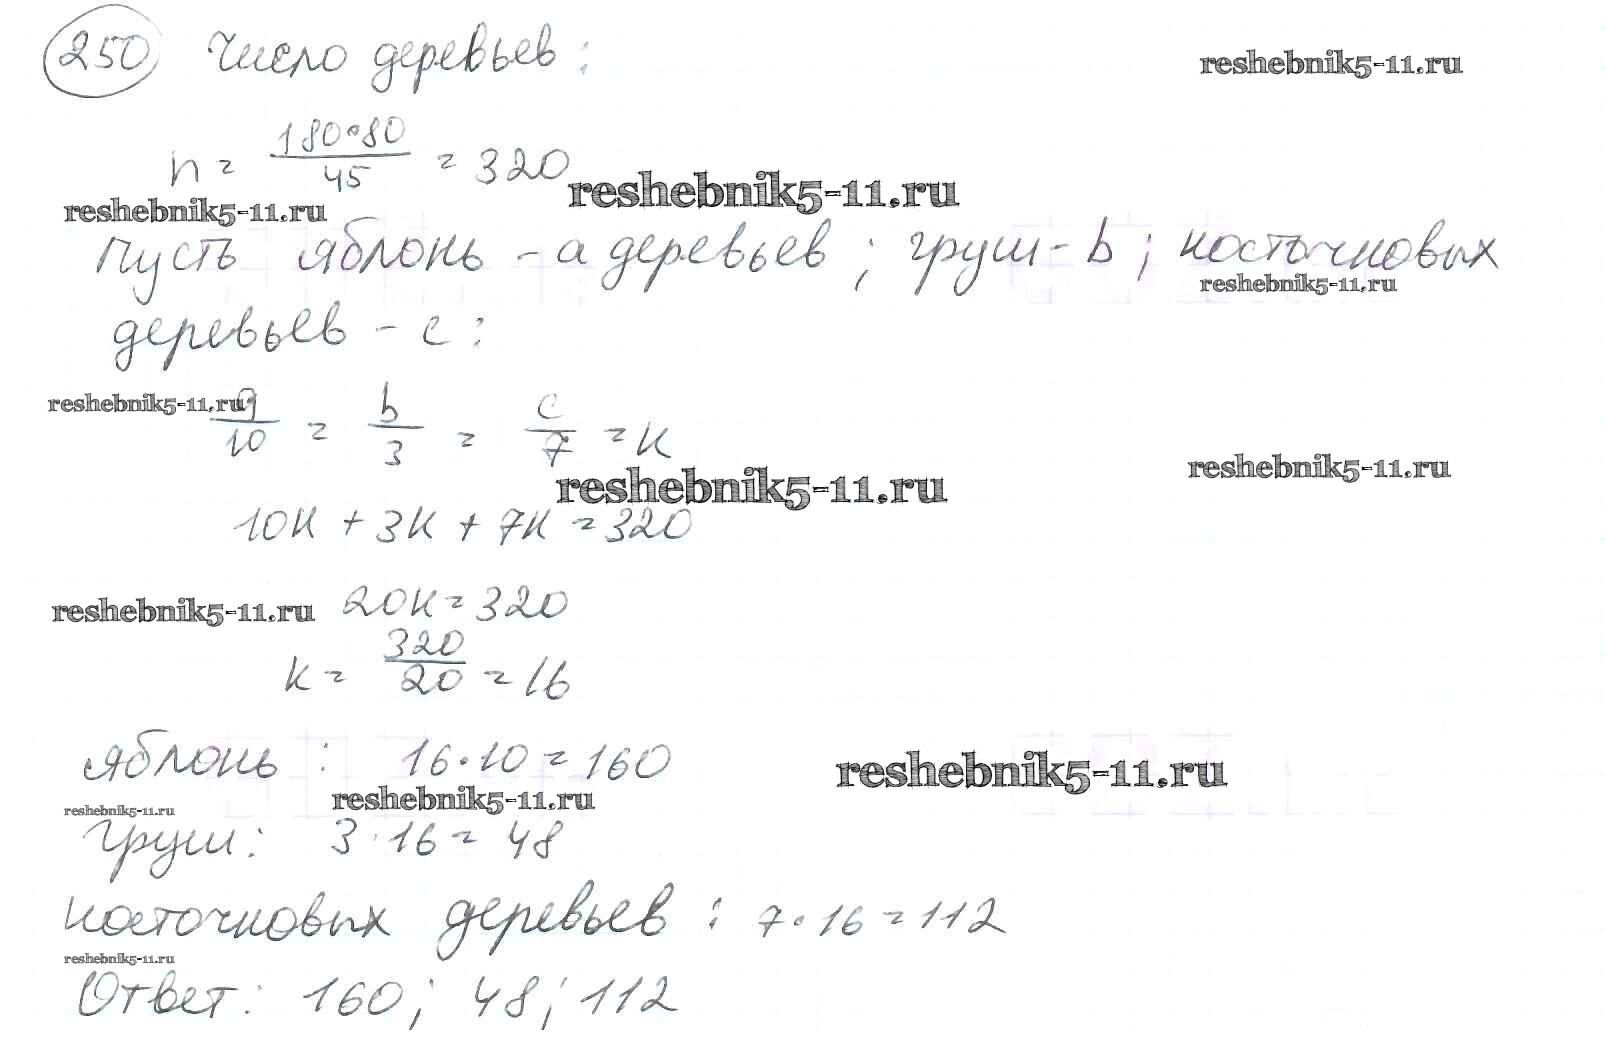 250 Число деревьев:
reshebnik5-11.ru
n = 180•80 / 45 = 320
reshebnik5-11.ru
reshebnik5-11.ru
Пусть яблонь - a деревьев; груш - b; косточковых
reshebnik5-11.ru
деревьев - c:
reshebnik5-11.ru
a/10 = b/3 = c/7 = k
reshebnik5-11.ru
reshebnik5-11.ru
10k + 3k + 7k = 320
reshebnik5-11.ru
20k = 320
k = 320/20 = 16
яблонь: 16•10 = 160
reshebnik5-11.ru
reshebnik5-11.ru
reshebnik5-11.ru
груш: 3•16 = 48
косточковых деревьев: 7•16 = 112
reshebnik5-11.ru
Ответ: 160; 48; 112